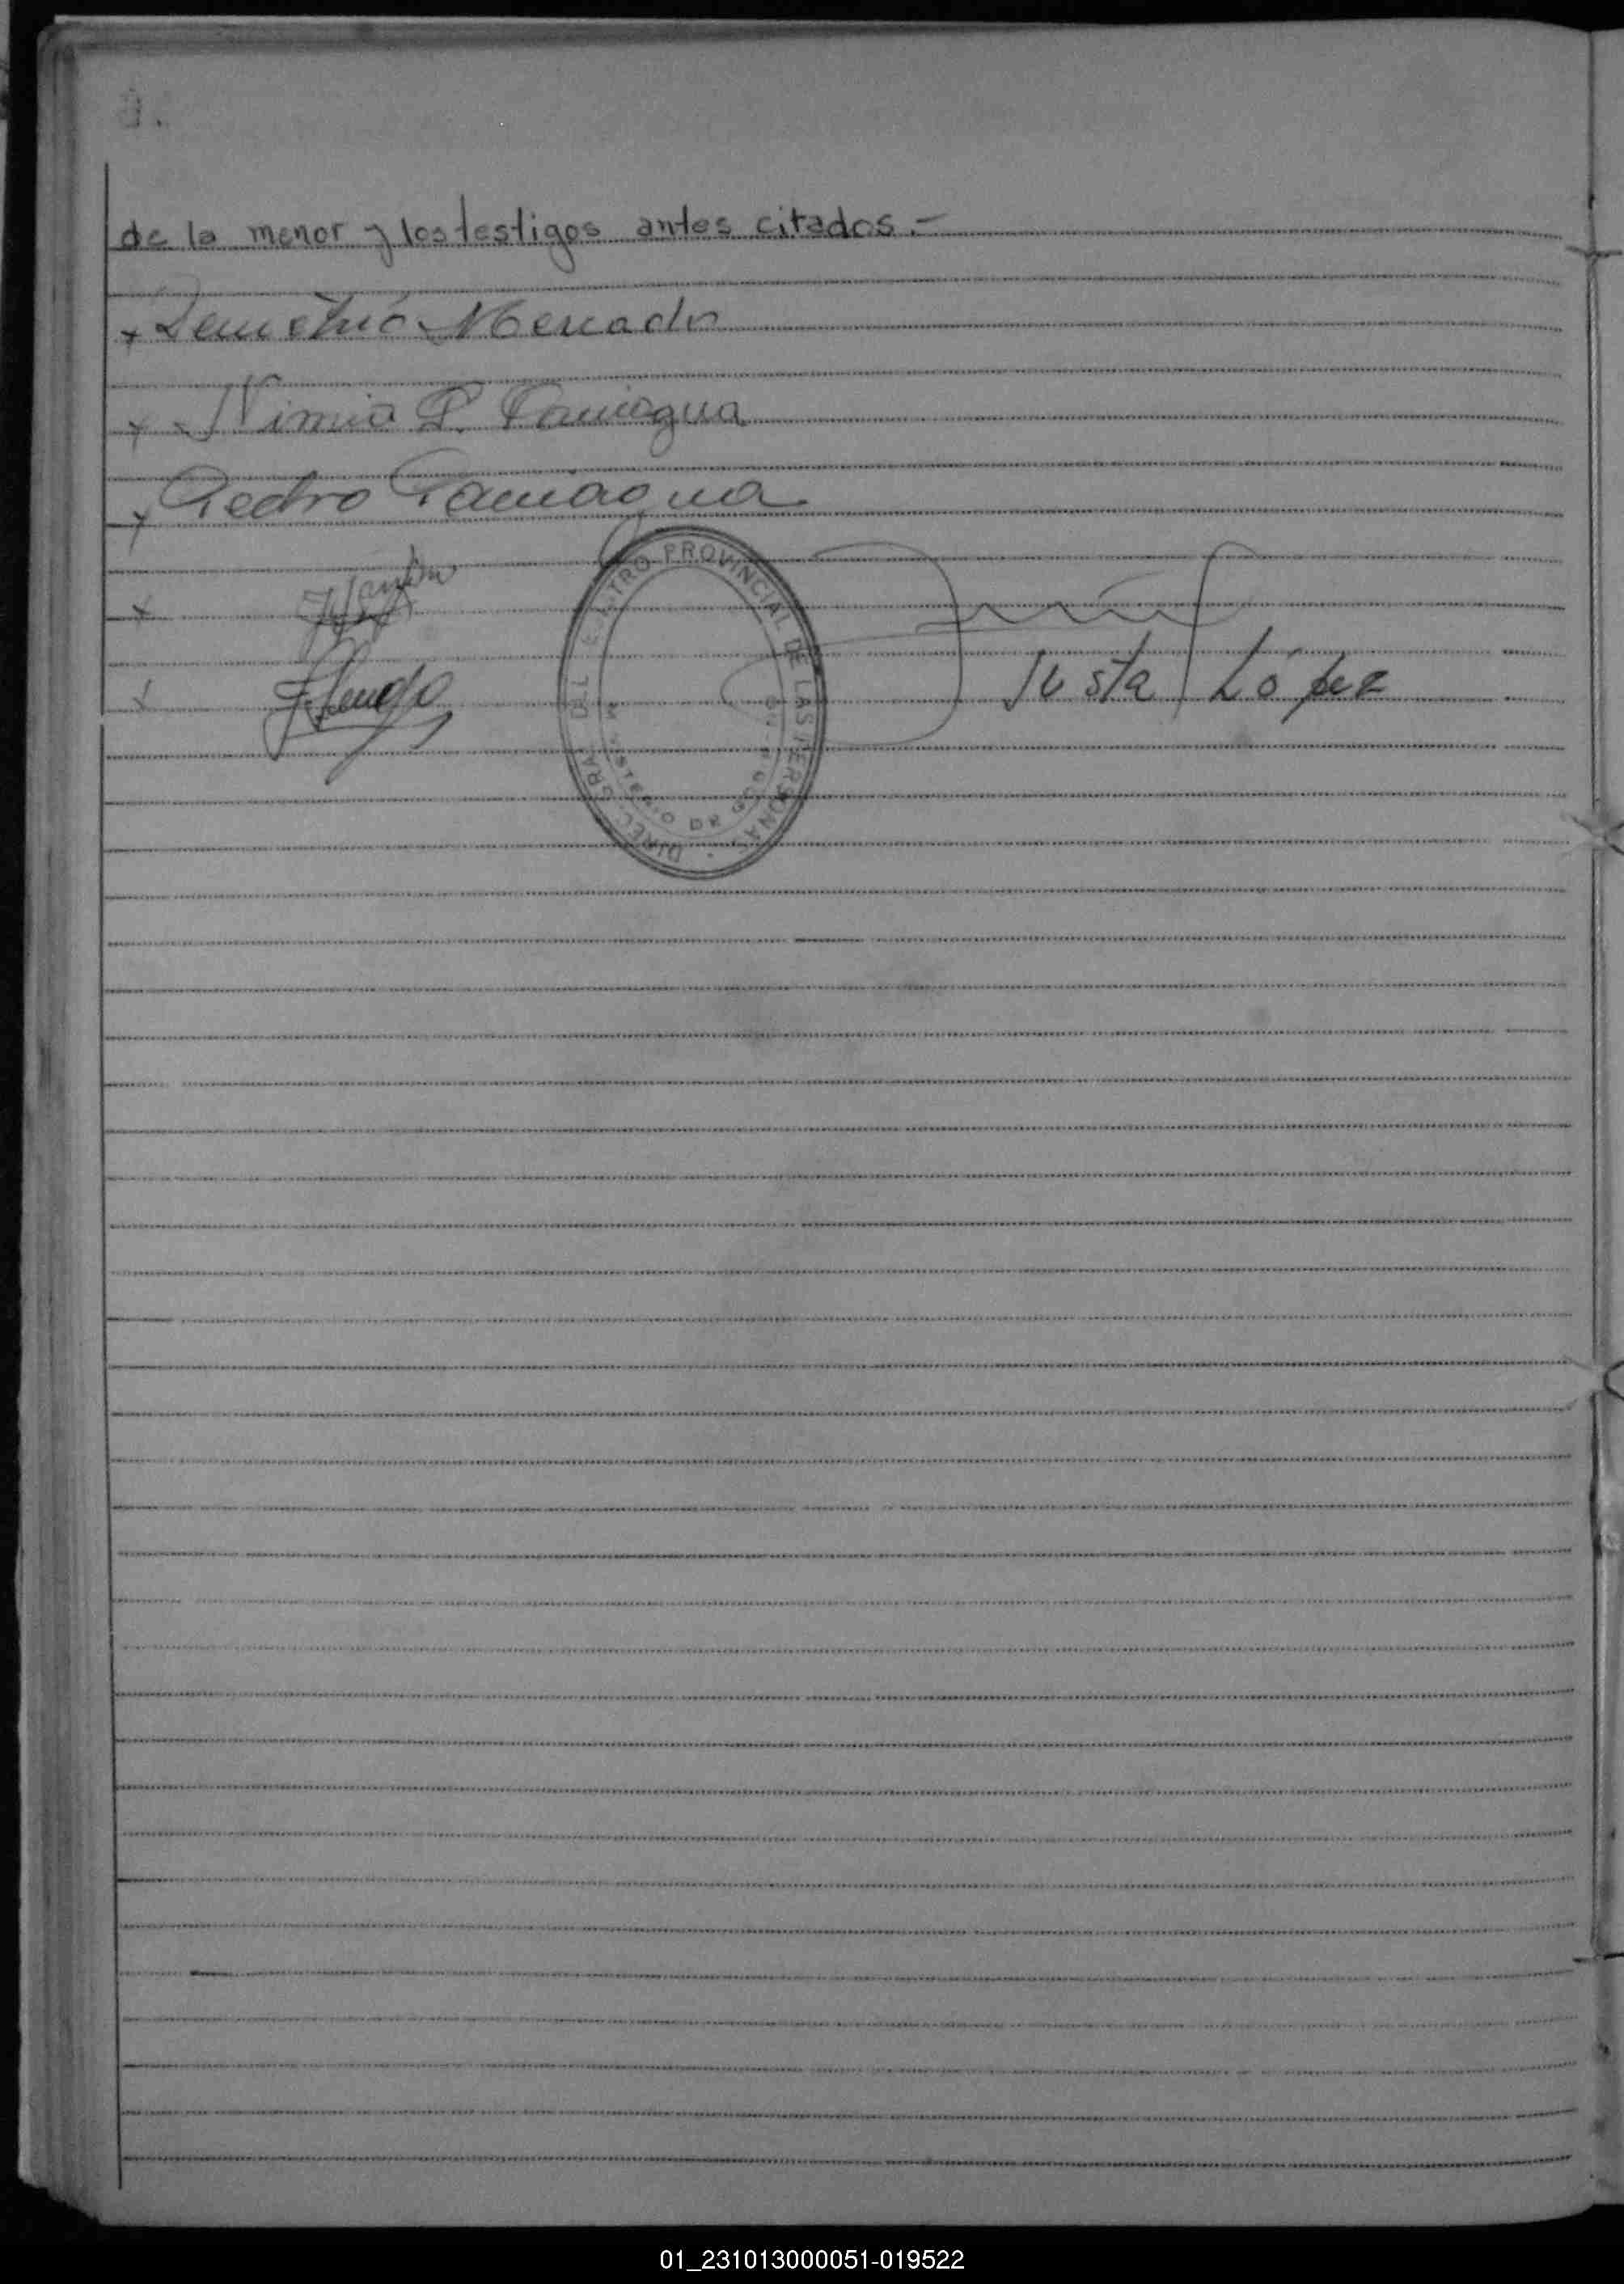 de la menor y los testigos antes citados.-
x Demetrio Mercado
x Nimio P. Paniagua
x Pedro Paniagua
x
x
Justa López
DIREC. GRAL. DEL REGISTRO PROVINCIAL DE LAS PERSONAS
MINISTERIO DE GOB
01_231013000051-019522